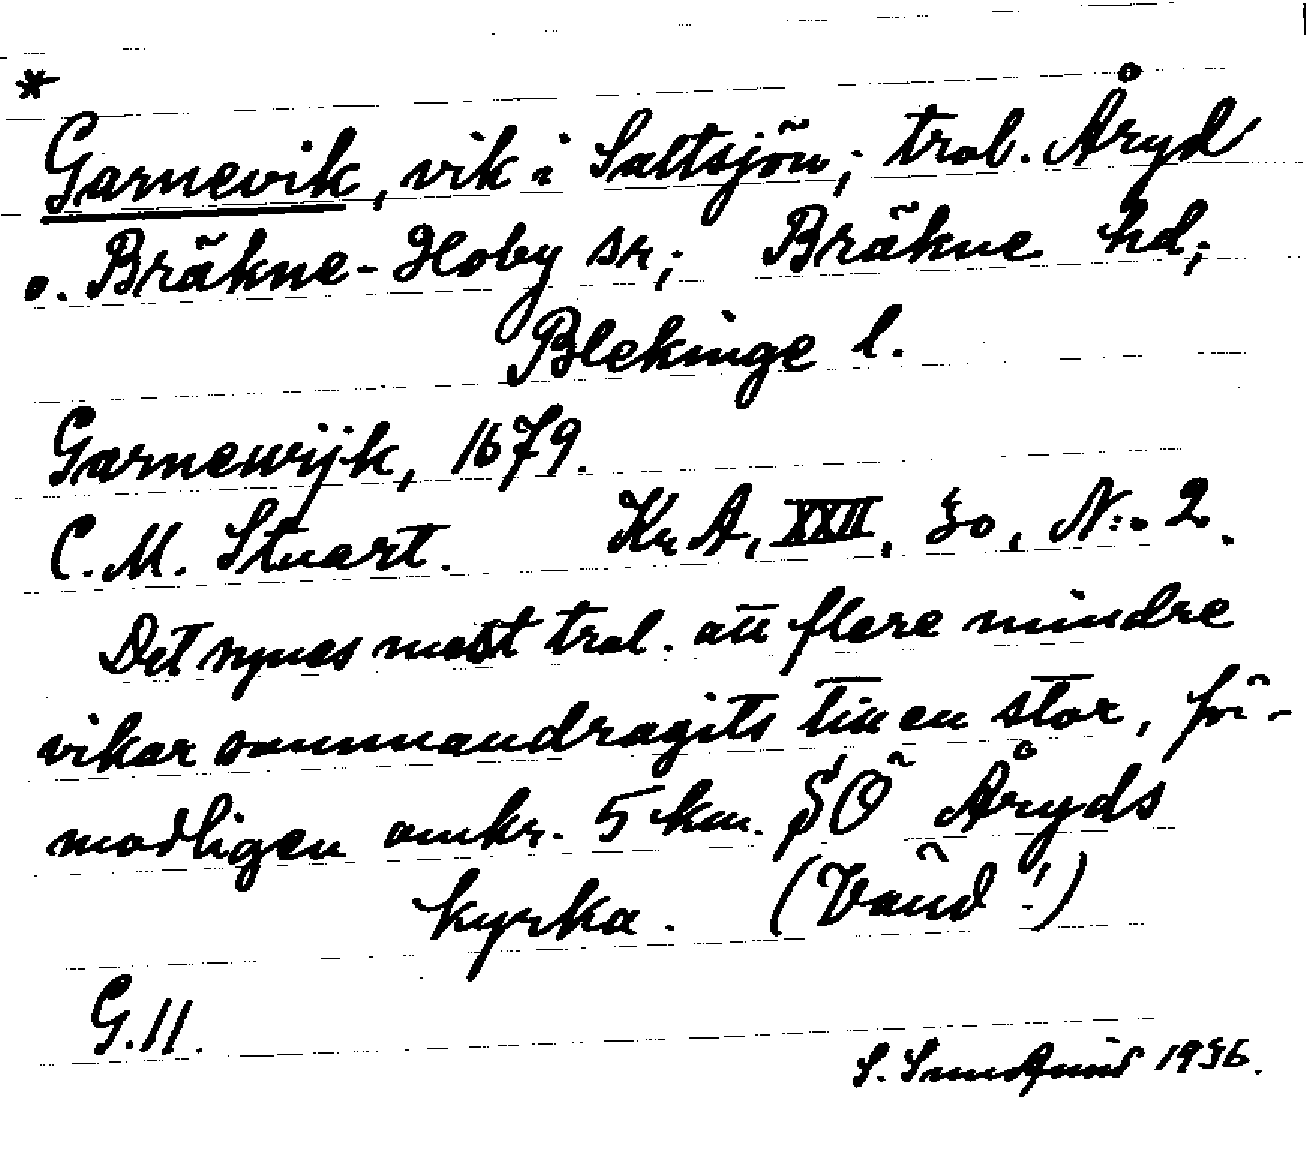 *
Garnevik, vik i Saltsjön; trol. Åryd
o. Bräkne-Hoby sn; Bräkne hd;
Blekinge l.
Garnewijk, 1679.
C. M. Stuart. Kr A, XXII, 30, N:o 2.
Det synes mest trol. att flere mindre
vikar sammandragits till en stor, för-
modligen omkr. 5 km. SÖ Åryds
kyrka. (Vänd!)
G.11.
S. 1936.